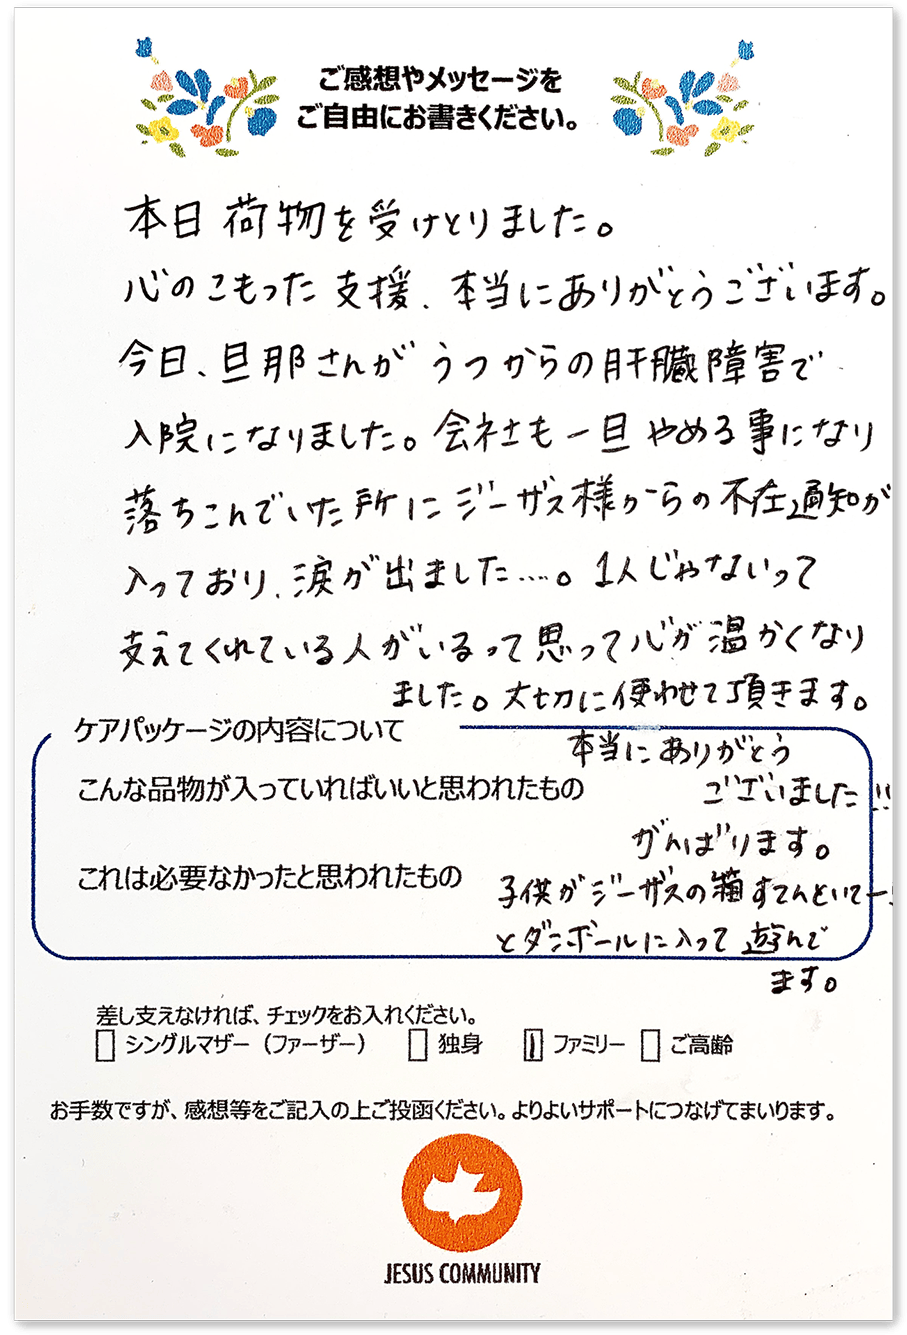 ご感想やメッセージを
ご自由にお書きください。
本日荷物を受けとりました。
心のこもった支援、本当にありがとうございます。
今日、旦那さんがうつからの肝臓障害で
入院になりました。会社も一旦やめる事になり
落ちこんでいた所にジーザス様からの不在通知が
入っており、涙が出ました....。1人じゃないって
支えてくれている人がいるって思って心が温かくなり
ました。大切に使わせて頂きます。
ケアパッケージの内容について
本当にありがとう
こんな品物が入っていればいいと思われたもの
ございました!!!
がんばります。
これは必要なかったと思われたもの
子供がジーザスの箱すてんといてー!
とダンボールに入って遊んで
ます。
差し支えなければ、チェックをお入れください。
シングルマザー（ファーザー） 独身 ファミリー ご高齢
お手数ですが、感想等をご記入の上ご投函ください。よりよいサポートにつなげてまいります。
JESUS COMMUNITY